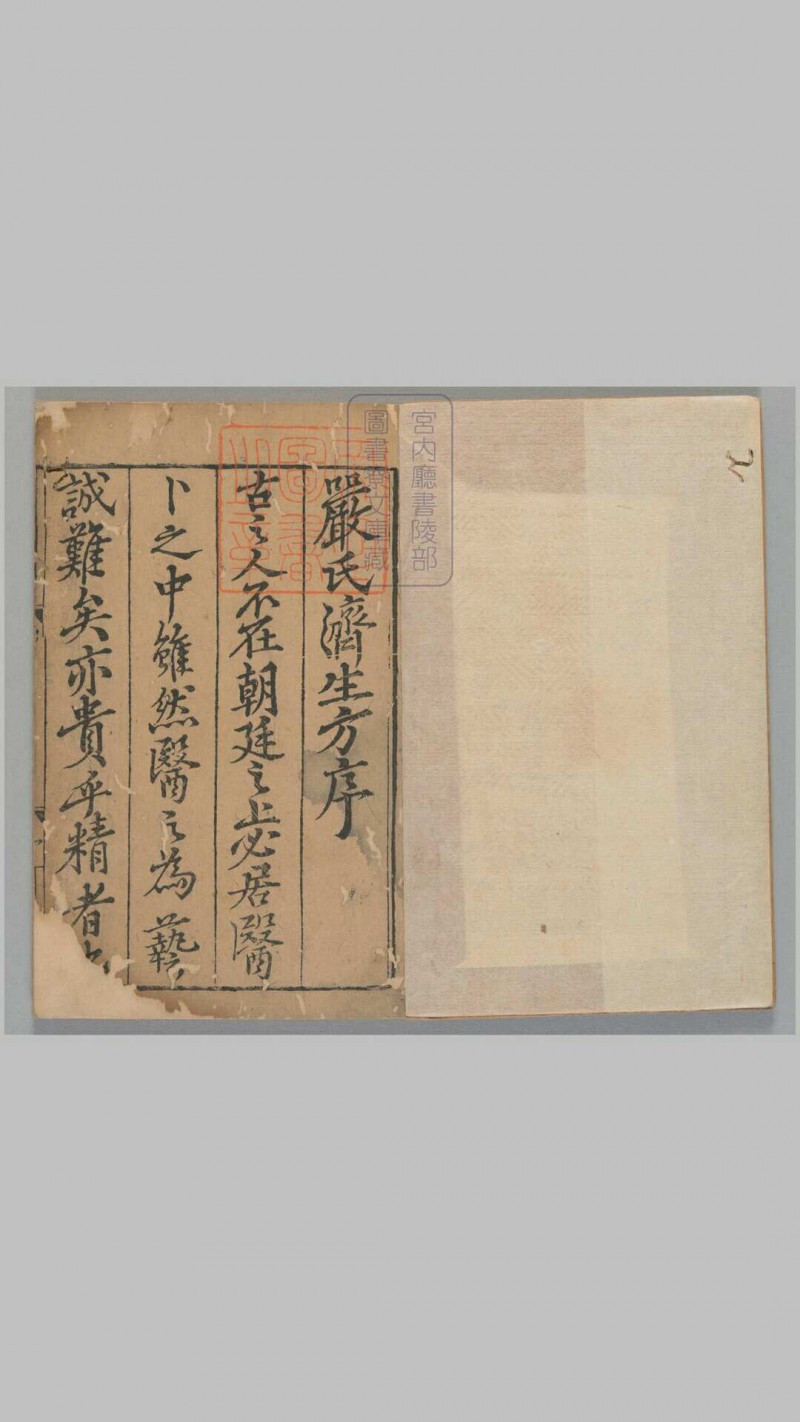 嚴氏濟生方序
古之人不在朝廷之上必居醫
卜之中雖然醫之為藝
誠難矣亦貴乎精者
宮内廳書陵部
圖書寮文庫藏